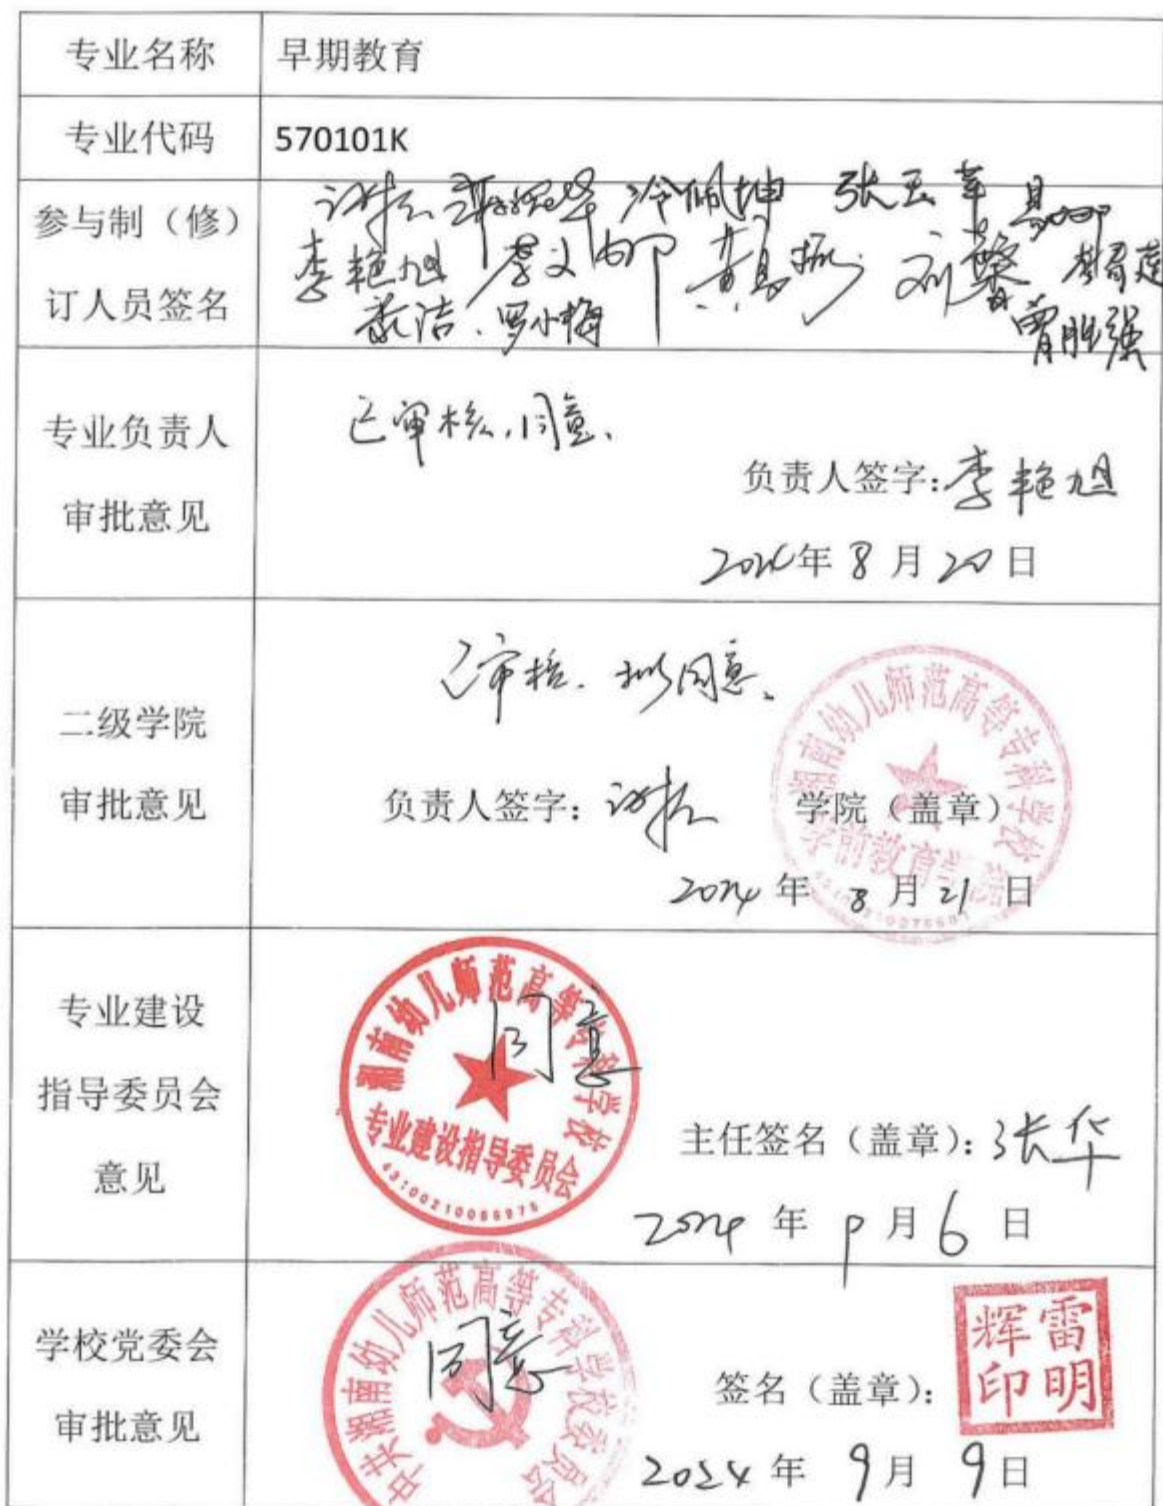 专业名称 早期教育
专业代码 570101K
参与制（修）
订人员签名
冷佩坤 张玉苹
李艳旭 刘馨
罗小梅 曾胜强
专业负责人
审批意见
已审核，同意、
负责人签字：李艳旭
2024年 8 月 20 日
二级学院
审批意见
已审核、拟同意、
负责人签字： 学院（盖章）
2024 年 8 月 21 日
湘南幼儿师范高等专科学校
学前教育学院
专业建设
指导委员会
意见
同意
湘南幼儿师范高等专科学校
专业建设指导委员会
主任签名（盖章）：张华
2024 年 9 月 6 日
学校党委会
审批意见
同意
中共湘南幼儿师范高等专科学校委员会
签名（盖章）：
雷明辉印
2024 年 9 月 9 日